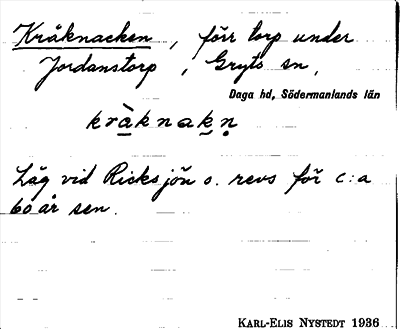 Kråknacken, förr torp under
Jordanstorp, Gryts sn,
Daga hd, Södermanlands län
kràknakn̥
Låg vid Ricksjön o. revs för c:a
60 år sen.
KARL-ELIS NYSTEDT 1936